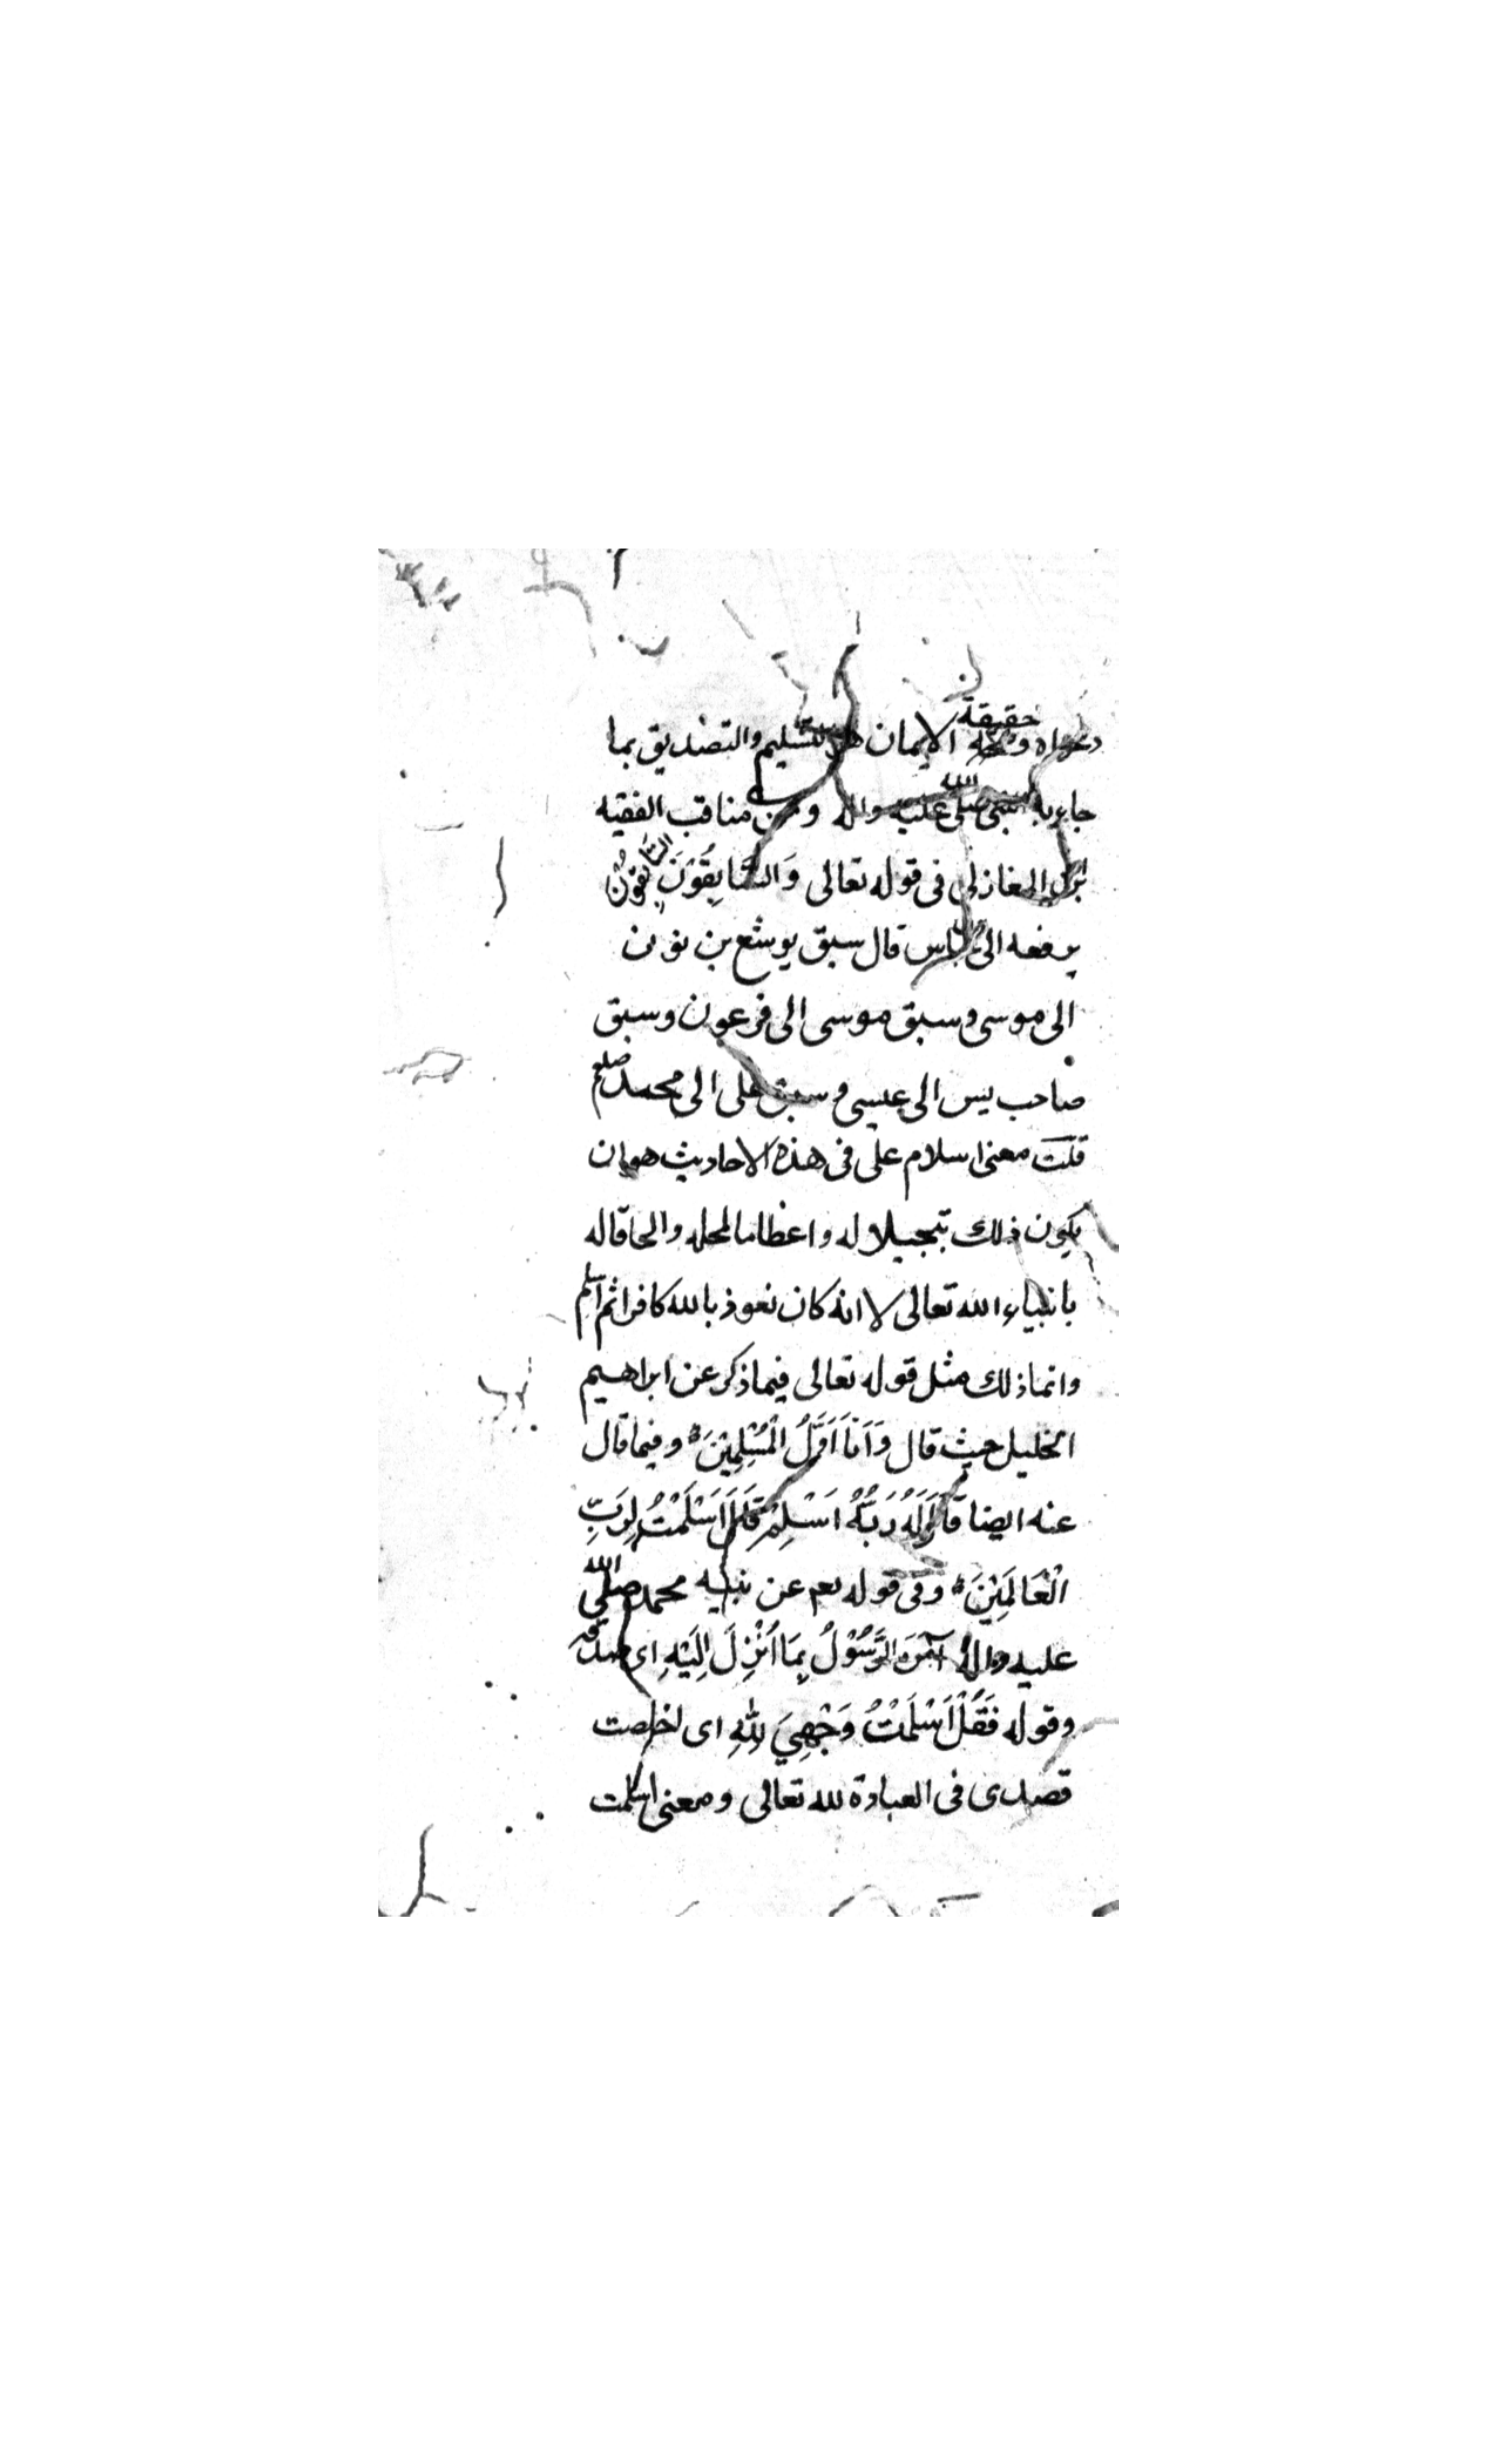 دعواه وحقيقة الايمان هى التسليم والتصديق بما
جاء به النبى صلى الله عليه واله ومن مناقب الفقيه
ابن المغازلى فى قوله تعالى وَالسَّابِقُوْنَ السَّابِقُوْنَ
يرفعه الى عباس قال سبق يوشع بن نون
الى موسى وسبق موسى الى فرعون وسبق
صاحب يس الى عيسى و سبق على الى محمد صلعم
قلت معنى اسلام على فى هذه الاحاديث هو ان
يكون ذلك تبجيلا له و اعظاما لمحله والحاقا له
بانبياء الله تعالى لا انه كان نعوذ بالله كافرا ثم اسلم
وانما ذلك مثل قوله تعالى فيما ذكر عن ابراهيم
الخليل حيث قال وَاَنَا اَوَّلُ الْمُسْلِمِيْنَ وفيما قال
عنه ايضا قَالَ لَهُ رَبُّهُ اَسْلِمْ قَالَ اَسْلَمْتُ لِرَبِّ
الْعَالَمِيْنَ وفى قوله تعم عن نبيه محمد صلى الله
عليه واله آمَنَ الرَّسُوْلُ بِمَا اُنْزِلَ اِلَيْهِ اى صدق
وقوله فَقُلْ اَسْلَمْتُ وَجْهِيَ لِلّٰهِ اى اخلصت
قصدى فى العبادة لله تعالى ومعنى اسلمت